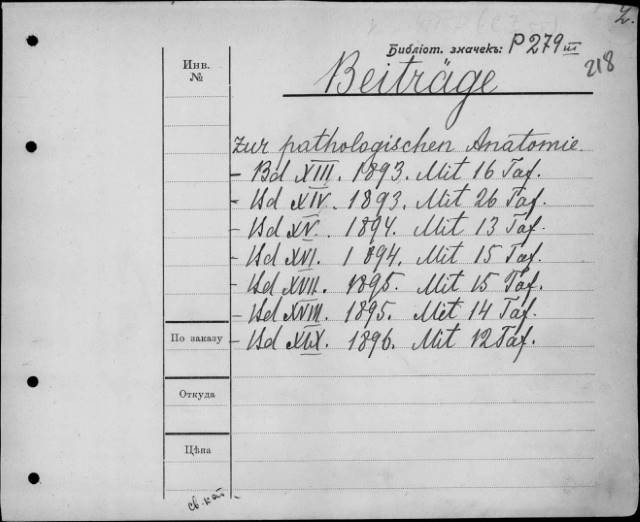 2.
Библіот. значекъ: P 279 III
218
Инв.
№
Beiträge
zur pathologischen Anatomie.
- Bd XIII. 1893. Mit 16 Taf.
- Bd XIV. 1893. Mit 26 Taf.
- Bd XV. 1894. Mit 13 Taf.
- Bd XVI. 1894. Mit 15 Taf.
- Bd XVII. 1895. Mit 15 Taf.
- Bd XVIII. 1895. Mit 14 Taf.
- Bd XIX. 1896. Mit 12 Taf.
По заказу
Откуда
Цѣна
св. кат